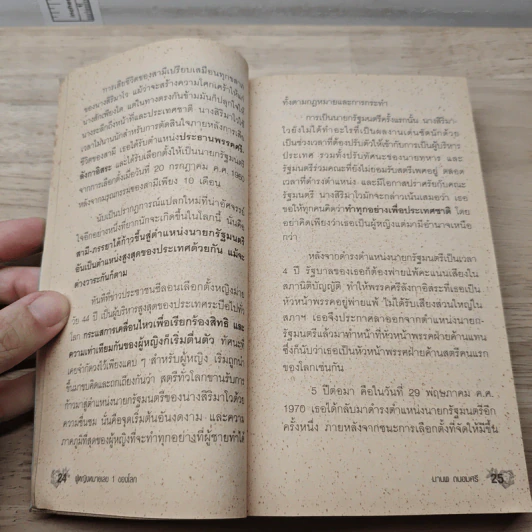 การเสียชีวิตของสามีเปรียบเสมือนทุกขลาภ
ของนางสิริมาโว แม้ว่าจะสร้างความโศกเศร้าให้กับ
นางสักเพียงใด แต่ในทางตรงกันข้ามมันก็ปลุกใจให้
นางระลึกถึงหน้าที่และประเทศชาติ นางสิริมาโวใช้
เวลาไม่นานนักสำหรับการตัดสินใจภายหลังการเสีย
ชีวิตของสามี เธอได้รับตำแหน่งประธานพรรคศรี
ลังกาอิสระ และได้รับเลือกตั้งให้เป็นนายกรัฐมนตรี
จากการเลือกตั้งเมื่อวันที่ 20 กรกฎาคม ค.ศ. 1960
หลังจากมรณกรรมของสามีเพียง 10 เดือน
นับเป็นปรากฏการณ์แปลกใหม่ที่น่าอัศจรรย์
ใจอีกอย่างหนึ่งที่ยากนักจะเกิดขึ้นในโลกนี้ นั่นคือ
สามี-ภรรยาได้ก้าวขึ้นสู่ตำแหน่งนายกรัฐมนตรี
อันเป็นตำแหน่งสูงสุดของประเทศด้วยกัน แม้จะ
ต่างวาระกันก็ตาม
ทันทีที่ข่าวประชาชนซีลอนเลือกตั้งหญิงม่าย
วัย 44 ปี เป็นผู้บริหารสูงสุดของประเทศระบือไปทั่ว
โลก กระแสการเคลื่อนไหวเพื่อเรียกร้องสิทธิ และ
ความเท่าเทียมกันของผู้หญิงก็เริ่มตื่นตัว ทัศนะที่
เคยจำกัดวงไว้เพียงแคบ ๆ สำหรับผู้หญิง เริ่มถูกนำ
ขึ้นมาขบคิดและถกเถียงกันว่า สตรีทั่วโลกขานรับการ
ก้าวมาสู่ตำแหน่งนายกรัฐมนตรีของนางสิริมาโวด้วย
ความชื่นชม นั่นคือจุดเริ่มต้นอันงดงาม และความ
ภาคภูมิที่สุดของผู้หญิงที่จะทำทุกอย่างที่ผู้ชายทำได้
24 ผู้หญิงหมายเลข 1 ของโลก
ทั้งตามกฎหมายและการกระทำ
การเป็นนายกรัฐมนตรีครั้งแรกนั้น นางสิริมา
โวยังไม่ได้ทำอะไรที่เป็นผลงานเด่นชัดนักด้วย
เป็นช่วงเวลาที่ต้องปรับตัวให้เข้ากับการเป็นผู้บริหาร
ประเทศ รวมทั้งปรับทัศนะของนายทหาร และ
รัฐมนตรีร่วมคณะที่ยังไม่ยอมรับสตรีเพศอยู่ ตลอด
เวลาที่ดำรงตำแหน่ง และมีโอกาสปราศรัยกับคณะ
รัฐมนตรี นางสิริมาโวมักจะกล่าวเน้นเสมอว่า เธอ
ขอให้ทุกคนคิดว่าทำทุกอย่างเพื่อประเทศชาติ โดย
อย่าคิดเพียงว่าเธอเป็นผู้หญิงแต่มามีอำนาจเหนือ
กว่า
หลังจากดำรงตำแหน่งนายกรัฐมนตรีเป็นเวลา
4 ปี รัฐบาลของเธอก็ต้องพ่ายแพ้คะแนนเสียงใน
สภานิติบัญญัติ ทำให้พรรคศรีลังกาอิสระที่เธอเป็น
หัวหน้าพรรคอยู่พ่ายแพ้ ไม่ได้รับเสียงส่วนใหญ่ใน
สภาฯ เธอจึงประกาศลาออกจากตำแหน่งนายก-
รัฐมนตรีแล้วมาทำหน้าที่หัวหน้าพรรคฝ่ายค้านแทน
ซึ่งก็นับว่าเธอเป็นหัวหน้าพรรคฝ่ายค้านสตรีคนแรก
ของโลกเช่นกัน
5 ปีต่อมา คือในวันที่ 29 พฤษภาคม ค.ศ.
1970 เธอได้กลับมาดำรงตำแหน่งนายกรัฐมนตรีอีก
ครั้งหนึ่ง ภายหลังจากชนะการเลือกตั้งที่จัดให้มีขึ้น
มานพ ถนอมศรี 25